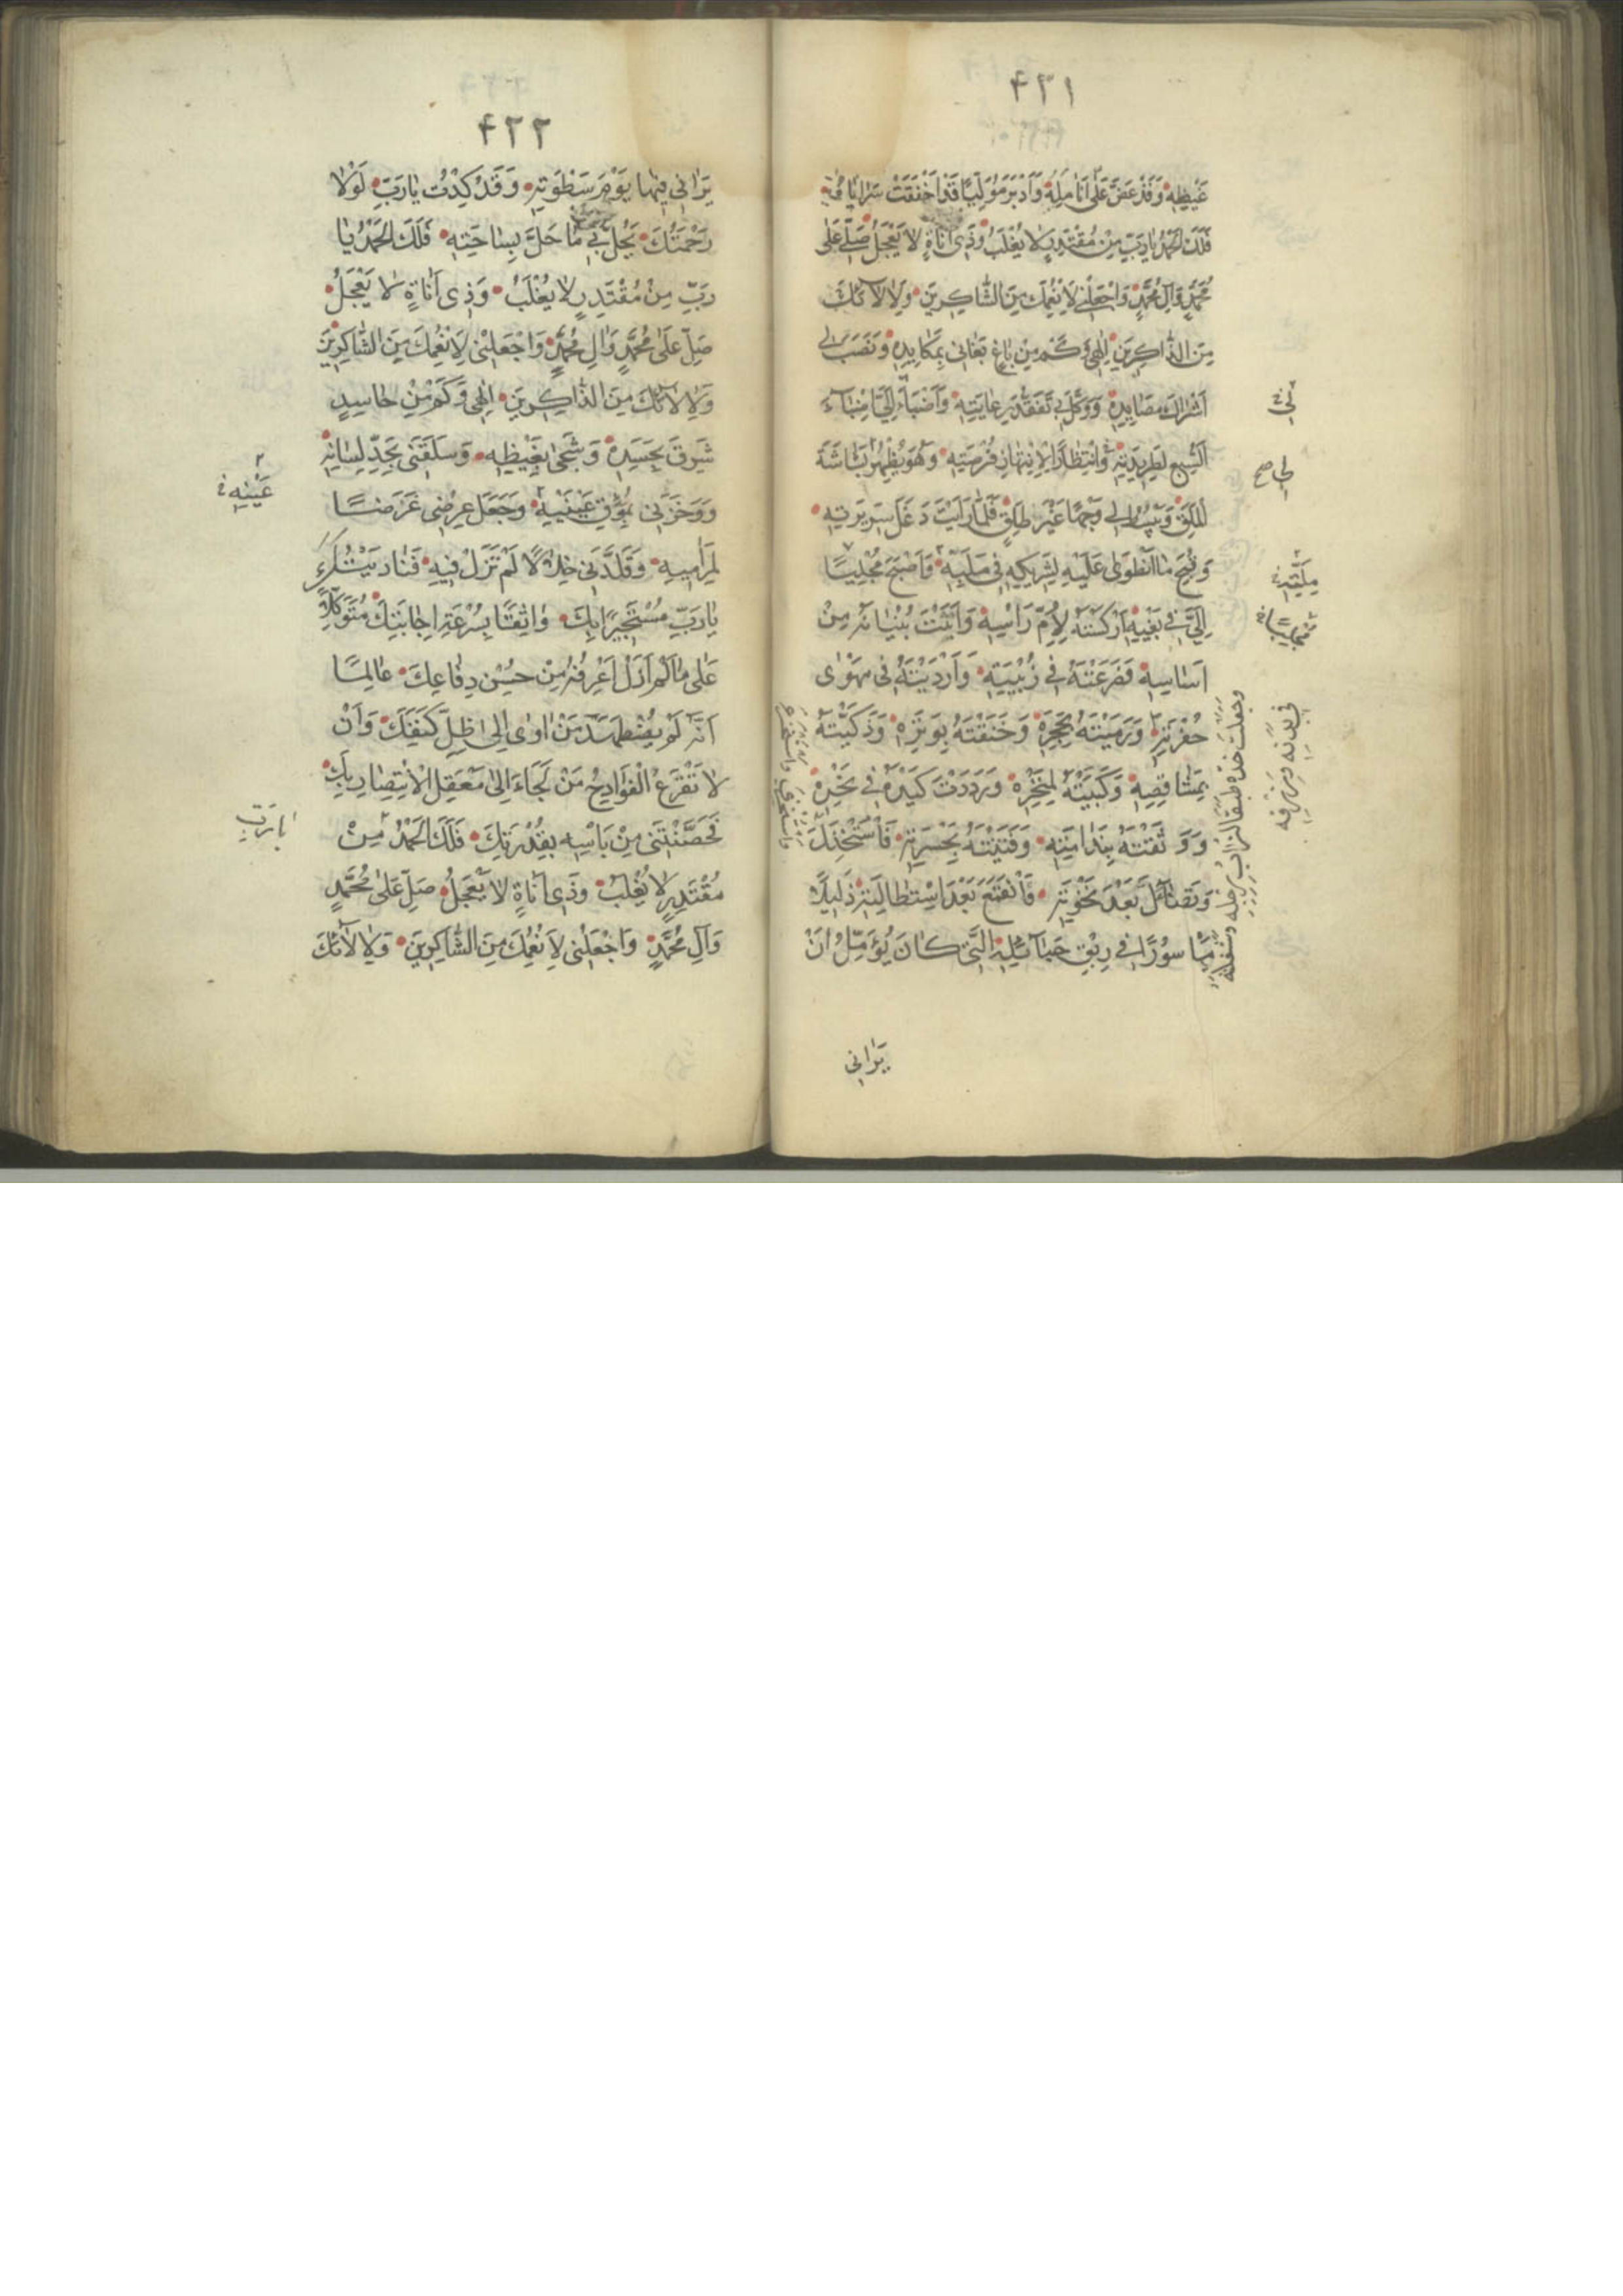 ٤٢١
غَيْظِهِ وَقَدْ عَضَّ عَلٰى اَنَامِلِهِ وَاَدْبَرَ مُوَلِّيًا قَدْ اَخْفَقَتْ سَرَايَاهُ
فَلَكَ الْحَمْدُ يَا رَبِّ مِنْ مُقْتَدِرٍ لَا يُغْلَبُ وَذِى اَنَاةٍ لَا يَعْجَلُ صَلِّ عَلٰى
مُحَمَّدٍ وَآلِ مُحَمَّدٍ وَاجْعَلْنِي لِاَنْعُمِكَ مِنَ الشَّاكِرِينَ وَلِاٰلَائِكَ
مِنَ الذَّاكِرِينَ اِلٰهِي وَكَمْ مِنْ بَاغٍ بَغَانِي بِمَكَايِدِهِ وَنَصَبَ لِي
اَشْرَاكَ مَصَايِدِهِ وَوَكَّلَ بِي تَفَقُّدَ رِعَايَتِهِ وَاَضْبَاَ اِلَيَّ اِضْبَاءَ
السَّبُعِ لِطَرِيدَتِهِ وَانْتِظَارًا لِانْتِهَازِ فُرْصَتِهِ وَهُوَ يُظْهِرُ بَشَاشَةَ
الْمَلَقِ وَيَبْسُطُ لِي وَجْهًا غَيْرَ طَلِقٍ فَلَمَّا رَاَيْتَ دَغَلَ سَرِيرَتِهِ
وَقُبْحَ مَا انْطَوٰى عَلَيْهِ لِشَرِيكِهِ فِي مُلِبِّهِ وَاَصْبَحَ مُجْلِبًا
اِلَيَّ فِي بَغْيِهِ اَرْكَسْتَهُ لِاُمِّ رَاْسِهِ وَاَتَيْتَ بُنْيَانَهُ مِنْ
اَسَاسِهِ فَصَرَعْتَهُ فِي زُبْيَتِهِ وَاَرْدَيْتَهُ فِي مَهْوٰى
حُفْرَتِهِ وَرَمَيْتَهُ بِحَجَرِهِ وَخَنَقْتَهُ بِوَتَرِهِ وَذَكَّيْتَهُ
بِمَشَاقِصِهِ وَكَبَبْتَهُ لِمِنْخَرِهِ وَرَدَدْتَ كَيْدَهُ فِي نَحْرِهِ
وَوَثَّقْتَهُ بِنَدَامَتِهِ وَفَتَنْتَهُ بِحَسْرَتِهِ فَاسْتَخْذَلَ
وَتَضَاءَلَ بَعْدَ نَخْوَتِهِ وَانْقَمَعَ بَعْدَ اسْتِطَالَتِهِ ذَلِيلًا
مَاْسُورًا فِي رِبْقِ حَبَائِلِهِ الَّتِي كَانَ يُؤَمِّلُ اَنْ
وجعلت خده طبقا لتراب رجله وشغلته
في بدنه ورزقه
يَرَانِي
٤٢٢
يَرَانِي فِيهَا يَوْمَ سَطْوَتِهِ وَقَدْ كِدْتُ يَا رَبِّ لَوْلَا
رَحْمَتُكَ يَحُلُّ بِي مَا حَلَّ بِسَاحَتِهِ فَلَكَ الْحَمْدُ يَا
رَبِّ مِنْ مُقْتَدِرٍ لَا يُغْلَبُ وَذِي اَنَاةٍ لَا يَعْجَلُ
صَلِّ عَلٰى مُحَمَّدٍ وَاٰلِ مُحَمَّدٍ وَاجْعَلْنِي لِاَنْعُمِكَ مِنَ الشَّاكِرِينَ
وَلِاٰلَائِكَ مِنَ الذَّاكِرِينَ اِلٰهِي وَكَمْ مِنْ حَاسِدٍ
شَرِقَ بِحَسَدِهِ وَشَجٰى بِغَيْظِهِ وَسَلَقَنِي بِحَدِّ لِسَانِهِ
وَوَخَزَنِي بِمُؤْقِ عَيْنَيْهِ وَجَعَلَ عِرْضِي غَرَضًا
عَيْنِهِ
لِمَرَامِيهِ وَقَلَّدَنِي خِلَالًا لَمْ تَزَلْ فِيهِ فَنَادَيْتُكَ
يَا رَبِّ مُسْتَجِيرًا بِكَ وَاثِقًا بِسُرْعَةِ اِجَابَتِكَ مُتَوَكِّلًا
عَلٰى مَا لَمْ اَزَلْ اَعْرِفُهُ مِنْ حُسْنِ دِفَاعِكَ عَالِمًا
اَنَّهُ لَمْ يُضْطَهَدْ مَنْ اٰوٰى اِلٰى ظِلِّ كَنَفِكَ وَاَنْ
لَا تَقْرَعَ الْفَوَادِحُ مَنْ لَجَاَ اِلٰى مَعْقِلِ الْاِنْتِصَارِ بِكَ
فَحَصَّنْتَنِي مِنْ بَاْسِهِ بِقُدْرَتِكَ فَلَكَ الْحَمْدُ مِنْ
يَا رَبِّ
مُقْتَدِرٍ لَا يُغْلَبُ وَذِي اَنَاةٍ لَا يَعْجَلُ صَلِّ عَلٰى مُحَمَّدٍ
وَآلِ مُحَمَّدٍ وَاجْعَلْنِي لِاَنْعُمِكَ مِنَ الشَّاكِرِينَ وَلِاٰلَائِكَ